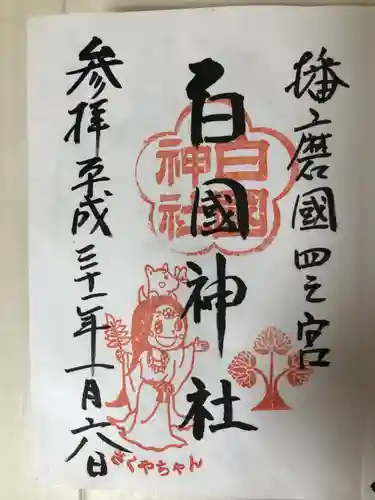 播磨國四之宮
白國神社
参拝平成三十一年一月六日
白國
神社
さくやちゃん